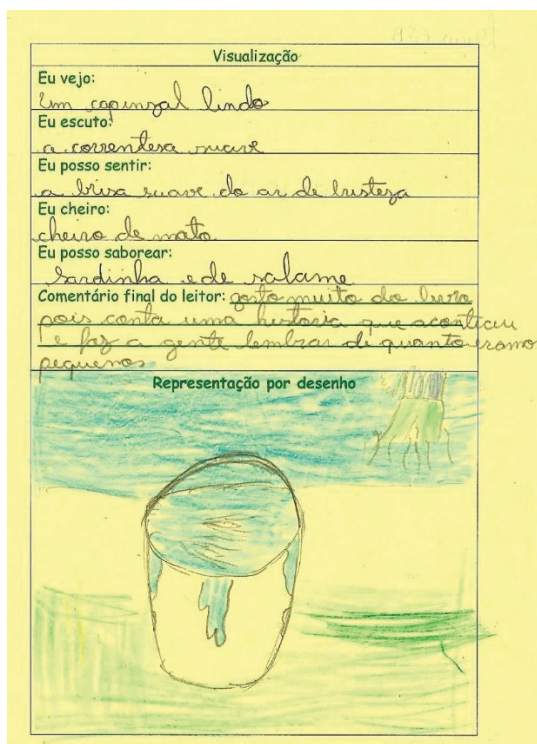 Visualização
Eu vejo:
Um capinzal lindo
Eu escuto:
a correntesa suave
Eu posso sentir:
a brisa suave do ar de tristeza
Eu cheiro:
cheiro de mato
Eu posso saborear:
sardinha e de salame
Comentário final do leitor: gosto muito do livro
pois conta uma historia que aconticeu
e faz a gente lembrar de quanto eramo
pequenos
Representação por desenho